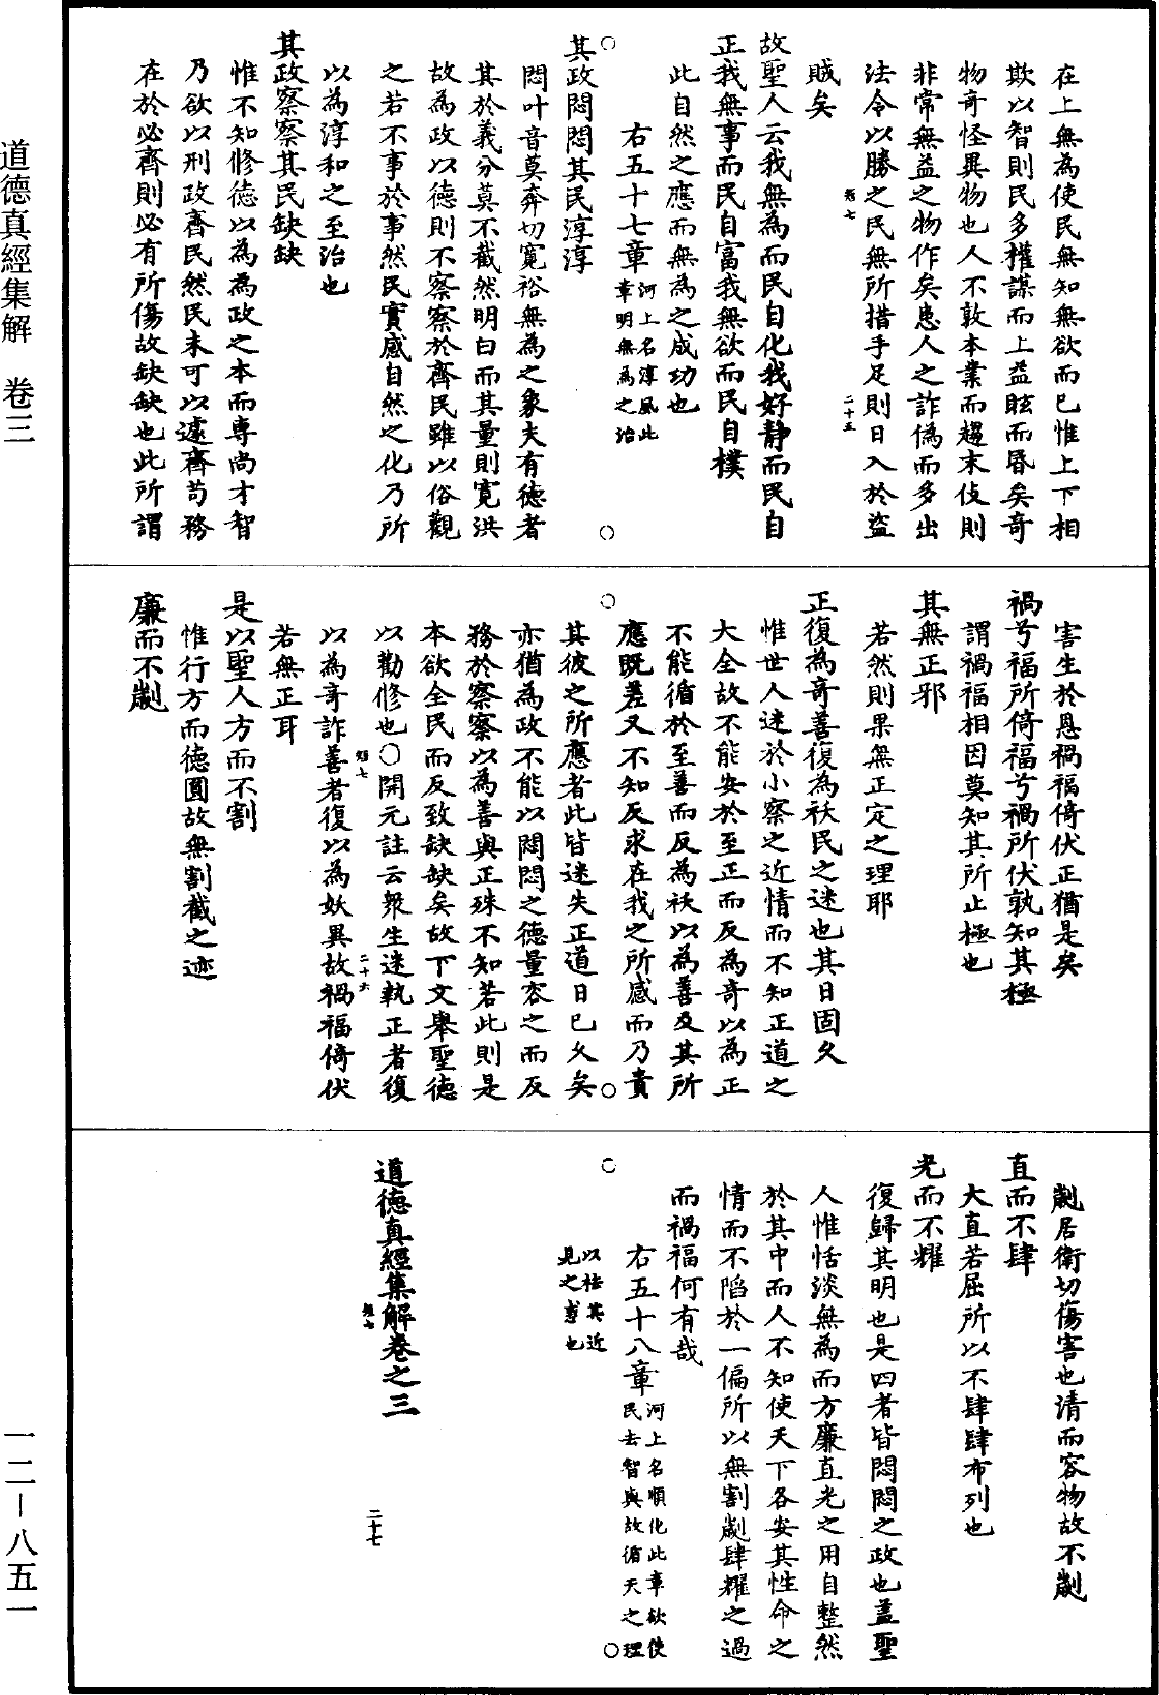 在上無為使民無知無欲而已惟上下相
欺以智則民多權謀而上益眩而昬矣奇
物奇怪異物也人不敦本業而趨末伎則
非常無益之物作矣患人之詐偽而多出
法令以勝之民無所措手足則日入於盜
二十五
賊矣
故聖人云我無為而民自化我好靜而民自
正我無事而民自富我無欲而民自樸
此自然之應而無為之成功也
右五十七章河上名淳風此
章明無為之治
其政悶悶其民淳淳
悶叶音莫奔切寬裕無為之象夫有德者
其於義分莫不截然明白而其量則寬洪
故為政以德則不察察於齊民雖以俗觀
之若不事於事然民實感自然之化乃所
以為淳和之至治也
其政察察其民缺缺
惟不知修德以為為政之本而專尚才智
乃欲以刑政齊民然民未可以遽齊苟務
在於必齊則必有所傷故缺缺也此所謂
害生於恩禍福倚伏正猶是矣
禍兮福所倚福兮禍所伏孰知其極
謂禍福相因莫知其所止極也
其無正邪
若然則果無正定之理耶
正復為奇善復為祅民之迷也其日固久
惟世人迷於小察之近情而不知正道之
大全故不能安於至正而反為奇以為正
不能循於至善而反為祅以為善及其所
應既差又不知反求在我之所感而乃責
其彼之所應者此皆迷失正道日已久矣
亦猶為政不能以悶悶之德量容之而反
務於察察以為善與正殊不知若此則是
本欲全民而反致缺缺矣故下文舉聖德
以勸修也○開元註云衆生迷執正者復
二十六
以為奇詐善者復以為妖異故禍福倚伏
若無正耳
是以聖人方而不割
惟行方而德圓故無割截之迹
廉而不劌
劌居衛切傷害也清而容物故不劌
直而不肆
大直若屈所以不肆肆布列也
光而不耀
復歸其明也是四者皆悶悶之政也蓋聖
人惟恬淡無為而方廉直光之用自整然
於其中而人不知使天下各安其性命之
情而不陷於一偏所以無割劌肆耀之過
而禍福何有哉
右五十八章河上名順化此章欲使
民去智與故循天之理
以祛其近
見之惑也
道德真經集解卷之三
二十七
道德真經集解　卷三
一二—八五一